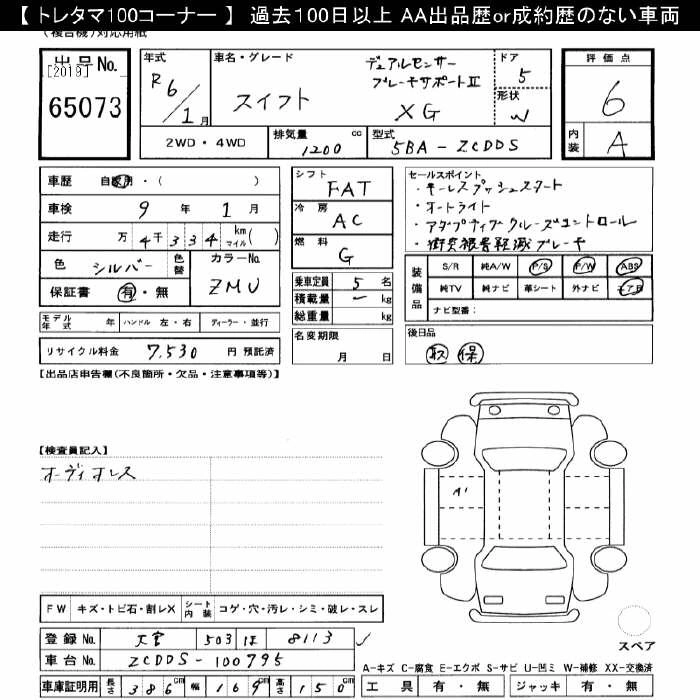 【 トレタマ100コーナー 】 過去100日以上 AA出品歴or成約歴のない車両
(複合機)対応用紙
出品No.
[2019]
65073
年式
R6/1月
車名・グレード
スイフト
デュアルセンサー
ブレーキサポートⅡ
XG
ドア
5
形状
W
評価点
6
内装
A
2WD・4WD
排気量
1200 cc
型式
5BA-ZCDDS
車歴 自家用・( )
車検 9年 1月
走行 万 4千334 km マイル( )
色 シルバー 色替
カラーNo.
ZMU
保証書 有・無
モデル年式 年 ハンドル 左・右 ディーラー・並行
リサイクル料金 7,530 円 預託済
シフト
FAT
冷房
AC
燃料
G
乗車定員 5 名
積載量 ー kg
総重量 kg
名変期限
月 日
セールスポイント
・キーレスプッシュスタート
・オートライト
・アダプティブクルーズコントロール
・衝突被害軽減ブレーキ
装備品
S/R 純A/W P/S P/W ABS
純TV 純ナビ 革シート 外ナビ エアB
ナビ型番:
後日品
取 保
【出品店申告欄(不良箇所・欠品・注意事項等)】
【検査員記入】
オーディオレス
A1
FW キズ・トビ石・割レX シート内装 コゲ・穴・汚レ・シミ・破レ・スレ
登録No. 大宮 503 ほ 8113
車台No. ZCDDS-100795
車庫証明用 長さ 386cm 幅 169cm 高さ 150cm
スペア
A-キズ C-腐食 E-エクボ S-サビ U-凹ミ W-補修 XX-交換済
工具 有・無 ジャッキ 有・無